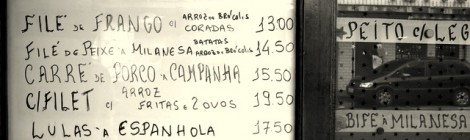 FILE DE FRANGO C/ ARROZ AO BRÓCOLIS CORADAS 13.00
FILE DE PEIXE A MILANESA BATATAS ARROZ AO BRÓCOLIS 14.50
CARRE DE PORCO A CAMPANHA 15.50
C/FILET C/ ARROZ FRITAS E 2 OVOS 19.50
LULAS A ESPANHOLA 17.50
PEITO C/LEG
BIFE À MILANESA